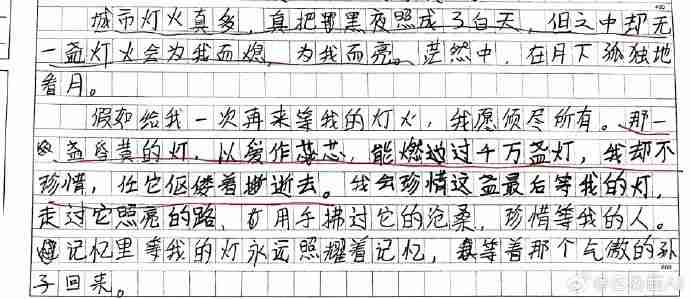 城市灯火真多，真把黑夜照成了白天，但之中却无
一盏灯火会为我而熄，为我而亮。茫然中，在月下孤独地
看月。
假如给我一次再来等我的灯火，我愿倾尽所有。那一
盏昏黄的灯，以爱作芯，能燃过千万盏灯，我却不
珍惜，任它佝偻着逝去。我会珍惜这盏最后等我的灯，
走过它照亮的路，用手拂过它的沧桑，珍惜等我的人。
记忆里等我的灯永远照耀着记忆，等着那个气傲的孙
子回来。